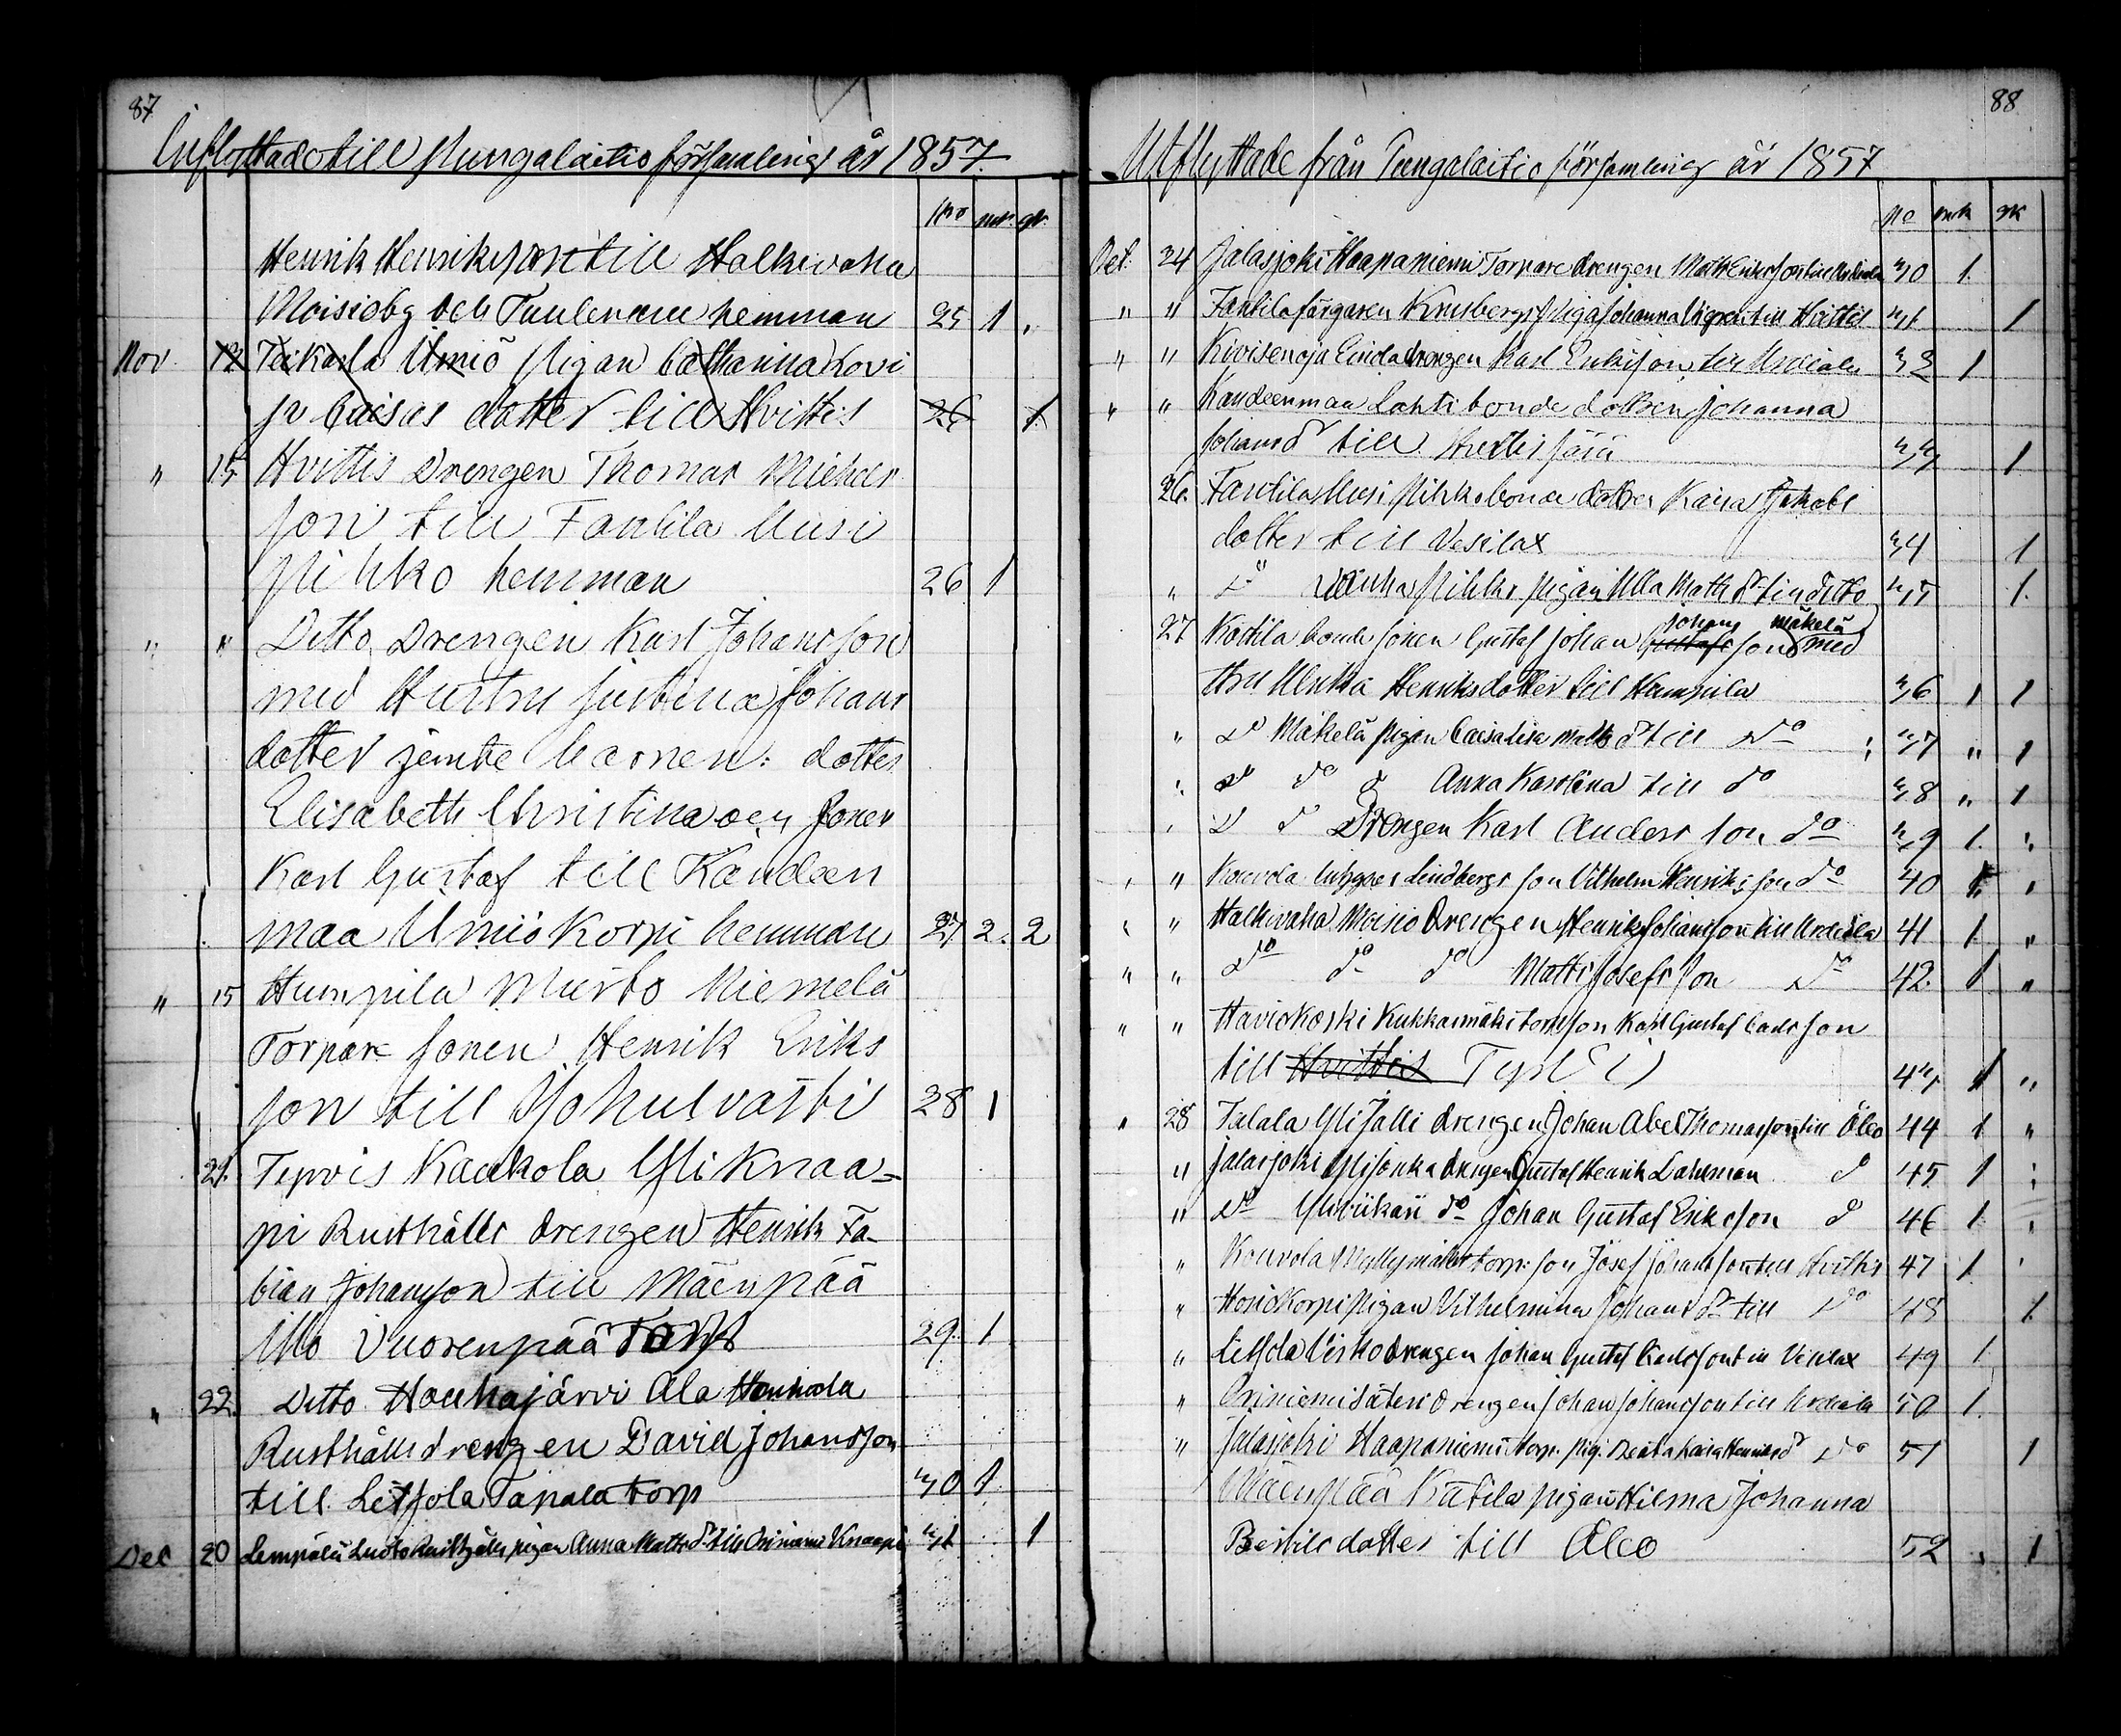 87
Inflyttade till Pungalaitio församling år 1857.
No mk. qk.
Henrik Henriksson till Halkivaha
Moisioby och Tuulenmu hemman 25 1 "
Nov. 12 Teikarla Umiö Pigan Catharina Lovi
sa Caisas dotter till Hvittis 26 1
" 15 Hvittis Drengen Thomas Michels
son till Fantila Uusi
Pihko hemman 26 1
" " Ditto Drengen Karl Johansson
med Hustru Justina Johans
dotter jemte barnen: dotter
Elisabeth Christina och Sonen
Karl Gustaf till Kandeen
maa Umiö Korpi hemman 27 2. 2
" 15 Humpila Murto Niemelä
Torpare sonen Henrik Eriks
son till Sjohulvasti 28 1
21. Tyrvis Kaukola Yli Knaa-
pi Rusthålls drengen Henrik Fa-
bian Johansson till Mäenpää
Ylö Vuorenpää Torp 29. 1
" 22. Ditto Houhajärvi Ala Houhala
Rusthålls drengen David Johansson
till Leitsola Tapala torp 30 1.
Dec 20 Lempälä Kuoto Rusthålls pigan Anna Matts dr till Oriniemi Knaapi 31 1
88
Utflyttade från Pungalaitio församling år 1857
No mk qk
Oct. 24 Jalasjoki Haapaniemi Torpare drengen Matts Eriksson till Urdiala 30 1.
" " Fantila färgaren Krusbergs Piga Johanna Vigren till Hvittis 31 1
" " Kivisenoja Einola drengen Karl Eriksson till Urdiala 32 1
" " Kandeenmaa Lahti bonde dottren Johanna
Johans dr till Hvittis 33 1
26. Fantila Uusi Pihko bonde dottren Kaisa Jakobs
dotter till Vesilax 34 1
" Do Wanha Pihko Pigan Ulla Matts dr till ditto 35 1.
27 Kostila bonde sonen Gustaf Johan Gustafs Johans son Mäkelä med
Hru Ulrika Henriksdotter till Humpila 36 1 1
" Do Mäkelä Pigan Caisa Lisa Matts dr till Do 37 " 1
" Do Do do Anna Karolina till do 38 " 1
" Do do Drengen Karl Anders son do 39 1. "
" " Kouvola inhyses Lindbergs son Vilhelm Henriksson do 40 1 "
" " Halkivaha Moisio Drengen Henrik Johansson till Urdiala 41 1. "
" " Do do do Matts Josefsson Do 42. 1 "
" " Haviokoski Kukkaimäki torp son Karl Gustaf Carlsson
till Hvittis Tyrvis 43 1 "
" 28 Talala Yli Jalli drengen Johan Abel Thomasson till Åbo 44 1 "
" Jalasjoki Yli Sonka drengen Gustaf Henrik Dahlman do 45 1 "
" Do Yliviikari do Johan Gustaf Eriksson do 46 1. "
" Kouvola Myllymäki torp: son Josef Johansson till Hvittis 47 1. "
" Honiokorpi Pigan Vilhelmina Johans dr till Do 48 1.
" Leitsola Uisko drengen Johan Gustaf Carlsson till Vesilax 49 1.
" Oriniemi Säteri drengen Johan Johansson till Urdiala 50 1.
" Jalasjoki Haapaniemi torp: Pig. Beata Kaisa Henriks dr Do 51 1
Mäenpää Kutila pigan Hilma Johanna
Bertils dotter till Åbo 52 " 1